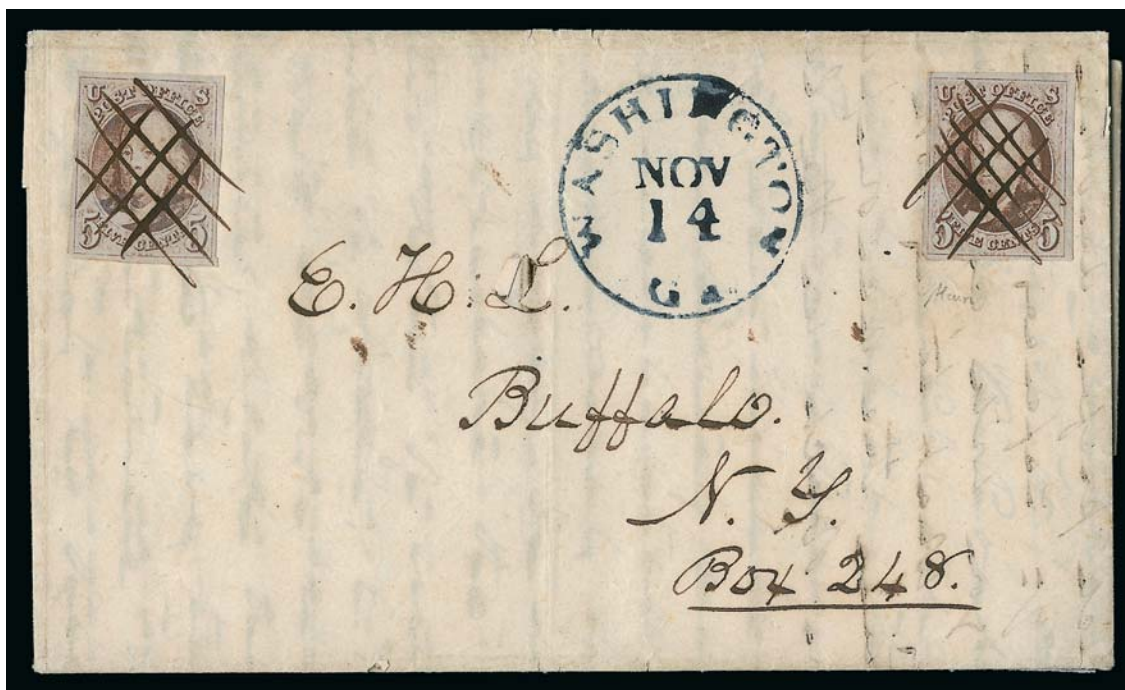 U S
POST OFFICE
5 FIVE CENTS 5
WASHINGTON
NOV
14
GA
U S
POST OFFICE
5 FIVE CENTS 5
E. H. L.
Buffalo.
N. Y.
Box 248.